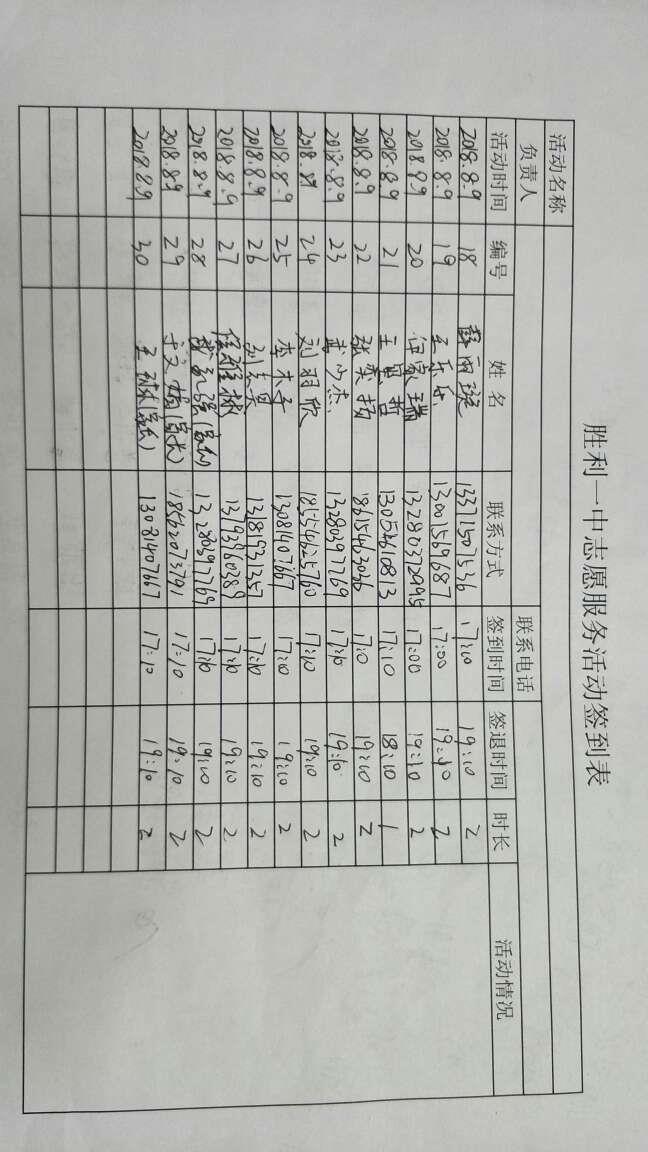 胜利一中志愿服务活动签到表
活动名称
负责人 联系电话
活动时间 编号 姓名 联系方式 签到时间 签退时间 时长 活动情况
2018.8.9 18 薛雨璇 13371507536 17:10 19:10 2
2018.8.9 19 王乐乐 13001569687 17:00 19:10 2
2018.8.9 20 任家瑞 13280372995 17:00 19:10 2
2018.8.9 21 王 哲 13054610813 17:10 18:10 1
2018.8.9 22 张奕扬 18615463036 17:10 19:10 2
2018.8.9 23 武少杰 13280397769 17:10 19:10 2
2018.8.9 24 刘羽欣 18554625760 17:10 19:10 2
2018.8.9 25 李 子 13081407667 17:10 19:10 2
2018.8.9 26 17:10 19:10 2
2018.8.9 27 17:10 19:10 2
2018.8.9 28 13280397769 17:10 19:10 2
2018.8.9 29 (家长) 18562073791 17:10 19:10 2
2018.8.9 30 王 (家长) 13081407667 17:10 19:10 2